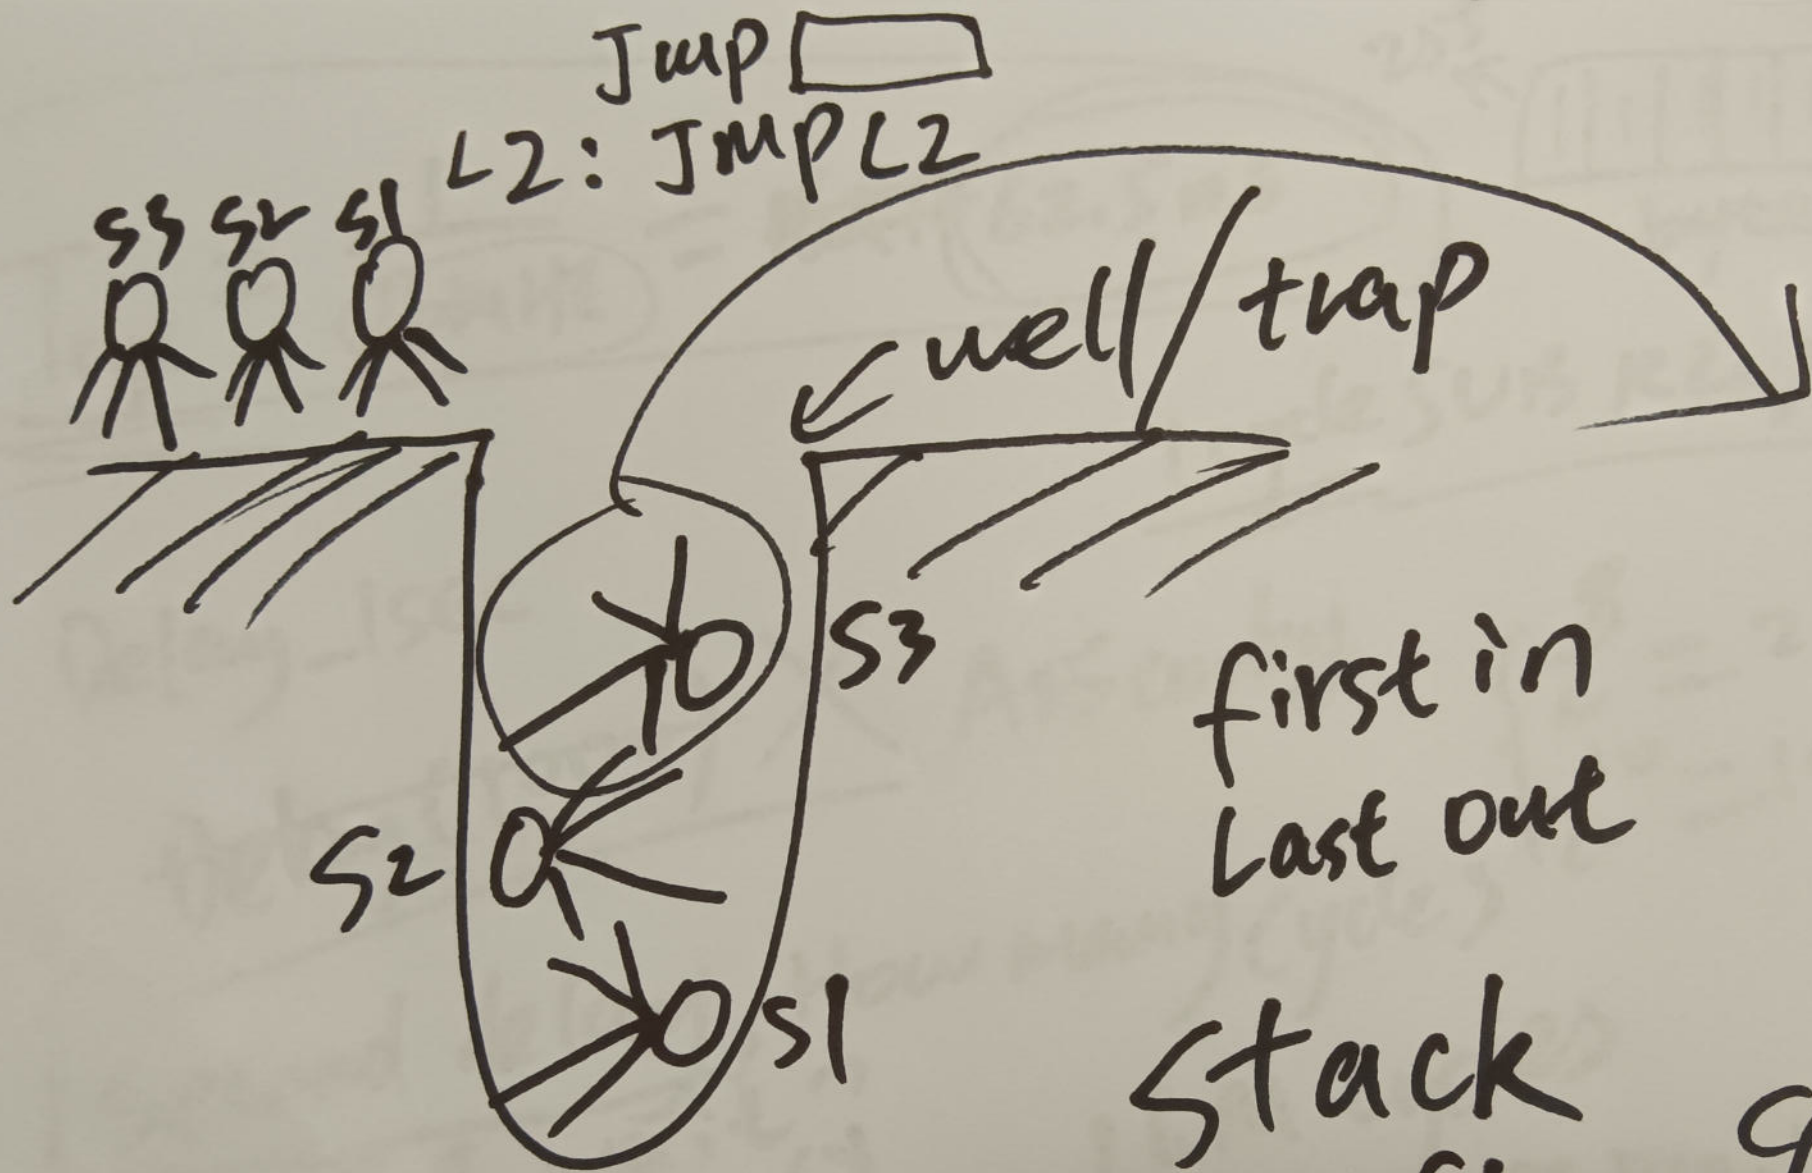 Jmp
L2: JMP L2
S3 S2 S1
well/trap
S3
first in
Last out
S2
S1
Stack